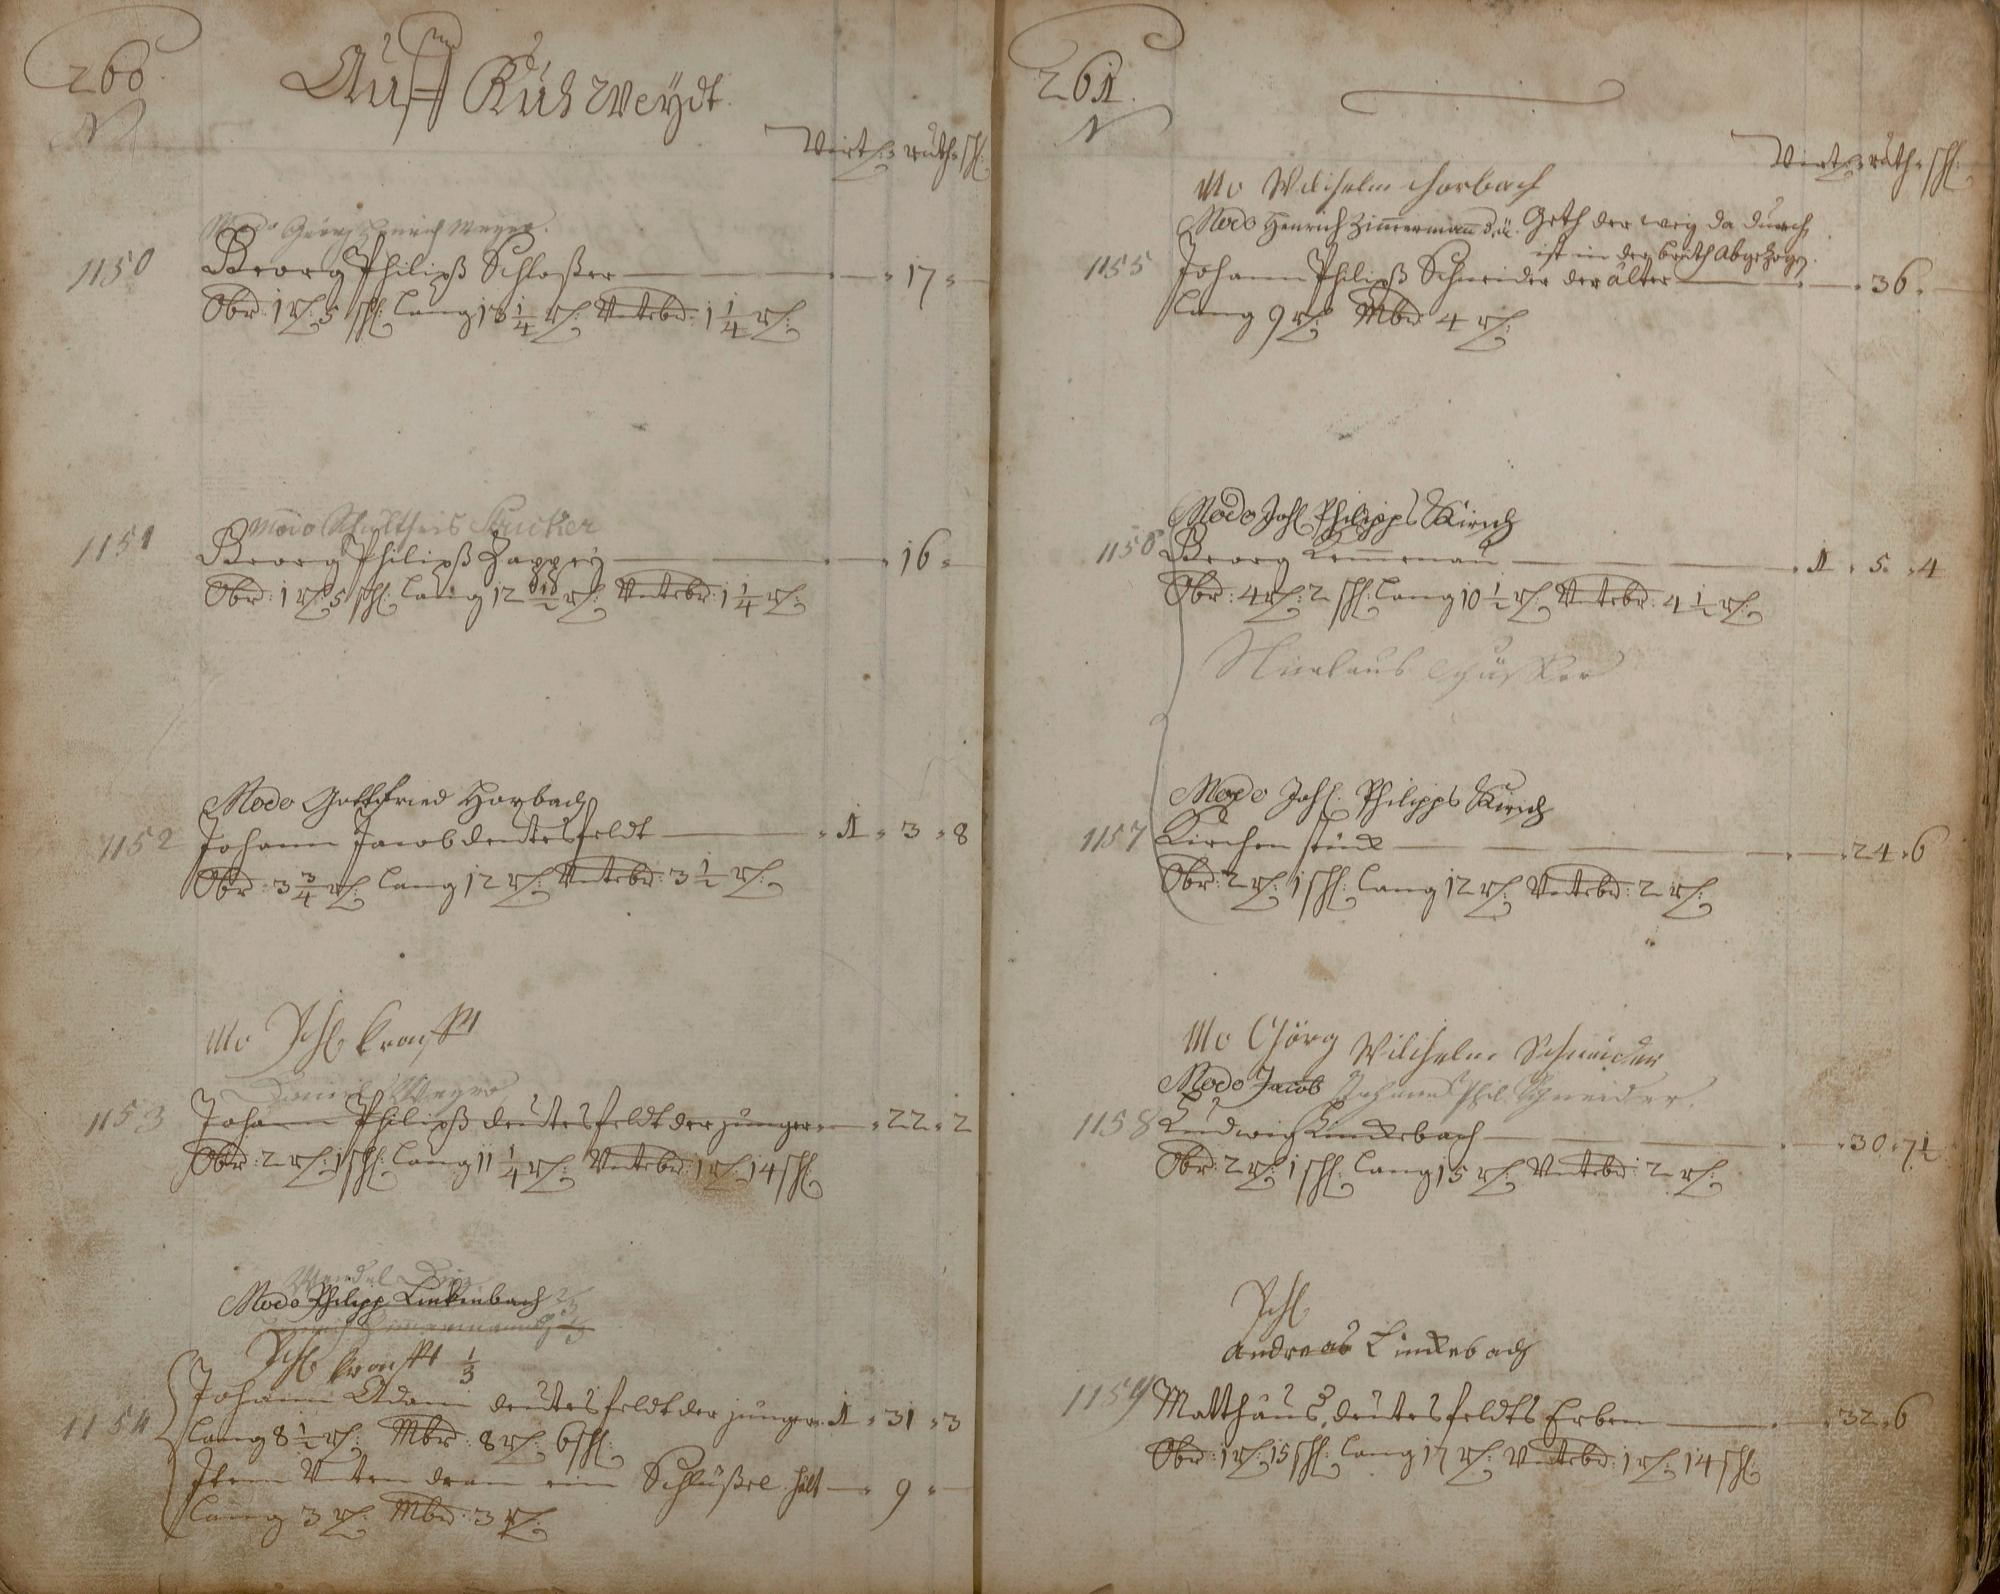 260
Auff Kuhweydt.
N
Virtz: ruth: sch:
Modo Georg Henrich Meyer.
1150 Georg Philipß Schloßer 17
Obr: 1 r: 5 sch: lang 13 1/4 r: Untsbr: 1 1/4 r:
Modo Schultheis
1151 Georg Philipß Zappey 16
Obr: 1 r: 5 sch: lang 12 1/2 r: Untsbr: 1 1/4 r:
Modo Gottfried Horbach
1152 Johann Jacob deutesfeldt 1 3 8
Obr: 3 3/4 r: lang 12 r: Untsbr: 3 1/2 r:
Mo Joh Krafft
Daniel Meyer
1153 Johann Philipß deutesfeldt der junger 22 2
Obr: 2 r: 1 sch: lang 11 1/4 r: Untsbr: 1 r: 14 sch:
Wendel
Modo Philipp Linkenbach
Joh Krafft 1/3
1154 Johann Adam deutesfeldt der junger 1 31 3
lang 8 1/2 r: Mbr: 8 r: 6 sch:
Item Unten dran ein Schlüßel. halt 9
lang 3 r: Mbr: 3 r:
261.
N
Virtz: ruth: sch:
Mo Wilhelm Horbach
Modo Henrich Zimmerman Geth der weg da durch
ist in der breith Abgezogen.
1155 Johann Philipß Schneider der älter 36
lang 9 r: Mbr 4 r:
Modo Joh Philipps Kirch
1156 Georg Kemmenau 1 5 4
Obr: 4 r: 2 sch: lang 10 1/2 r: Untsbr: 4 1/2 r:
Nicolaus
Modo Joh. Philipps Kirch
1157 Kirchen stück 24 6
Obr: 2 r: 1 sch: lang 12 r: Untsbr: 2 r:
Mo Görg Wilhelm Schneider
Modo Jacob Johann Phil. Schneider.
1158 Ludwig Linckebach 30 7 1/2
Obr: 2 r: 1 sch: lang 15 r: Untsbr: 2 r:
Joh
Andreas Linckebach
1159 Matthäus deutesfeldts Erben 32 6
Obr: 1 r: 15 sch: lang 17 r: Untsbr: 1 r: 14 sch: